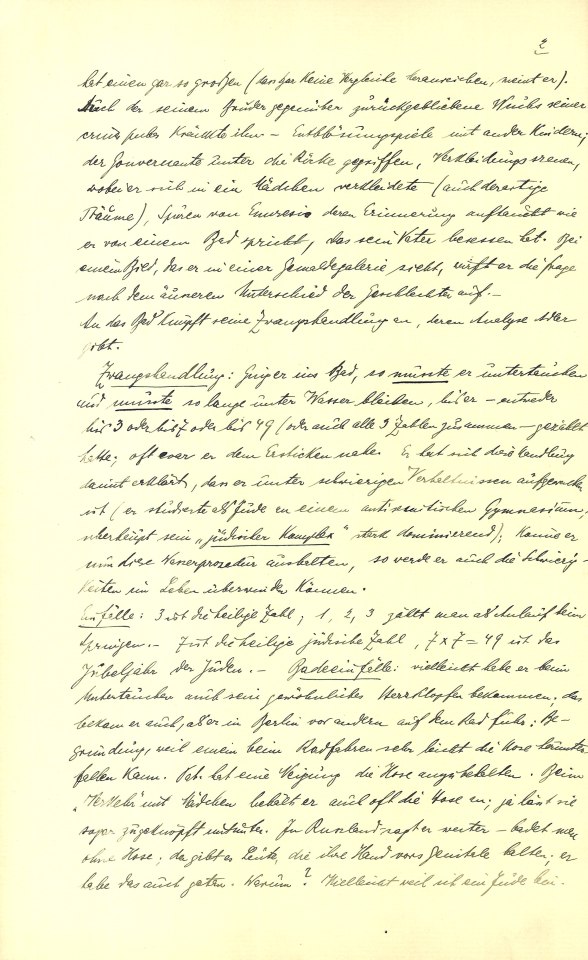 2
hat einen gar so großen (dass gar keine Vergleiche heranreichen, meint er).
Auch der seinem Bruder gegenüber zurückgebliebene Wuchs seiner
crines pubes kränkte ihn – Entblösungspiele mit anderen Kindern;
der Gouvernante unter die Röcke gegriffen, Verkleidungsszenen,
wobei er sich in ein Mädchen verkleidete (auch derartige
Träume), Spuren von Enuresis deren Erinnerung auftaucht wie
er von einem Bad spricht, das sein Vater besessen hat. Bei
einem Bild, das er in einer Gemäldegalerie sieht, wirft er die Frage
nach dem äusseren Unterschied der Geschlechter auf. –
An das Bad knüpft seine Zwangshandlung an, deren Analyse Adler
gibt.
Zwangshandlung: Ging er ins Bad, so musste er untertauchen
und musste so lange unter Wasser bleiben, bis er – entweder
bis 3 oder bis 7 oder bis 49 (oder auch alle 3 Zahlen zusammen – gezählt
hatte; oft war er dem Ersticken nahe. Er hat sich diese Handlung
damit erklärt, dass er unter schwierigen Verhältnissen aufgewachsen
ist (er studierte als Jude an einem antisemitischen Gymnasium;
überhaupt sein „jüdischer Komplex“ stark dominierend); könne er
nun diese Wasserprozedur aushalten, so werde er auch die Schwierig-
keiten im Leben überwinden können.
Einfälle: 3 ist die heilige Zahl, 1, 2, 3 zählt man als Anlauf beim
Springen. – 7 ist die heilige jüdische Zahl, 7 x 7 = 49 ist das
Jubeljahr der Juden. – Badeeinfälle: vielleicht habe er beim
Untertauchen auch sein gewöhnliches Herzklopfen bekommen; das
bekam er auch, als er in Berlin vor andern auf dem Rad fuhr: Be-
gründung, weil einem beim Radfahren sehr leicht die Hose herunter
fallen kann. Pat. hat eine Neigung die Hose anzubehalten. Beim
„Verkehr“ mit Mädchen behält er auch oft die Hose an; ja lässt sie
sogar zugeknöpft mitunter. In Russland sagt er weiter – badet man
ohne Hose; da gibt es Leute, die ihre Hand vors Genitale halten; er
habe das auch getan. Warum? Vielleicht weil ich ein Jude bin.